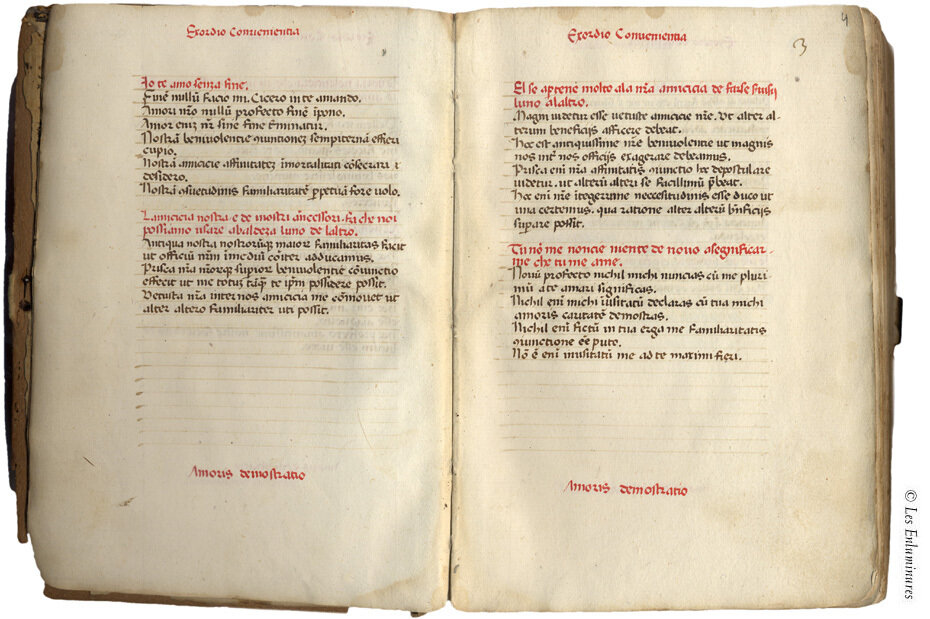 Exordio Convenientia
Io te amo senza fine.
Finẽ nullũ facio mi. Cicero in te amando.
Amori ñro nullũ profecto finẽ ĩpono.
Amor enĩ ñr sine fine t̃minatur.
Nostrã benivolentie iunctionez sempiternã effici
cupio.
Nostrã amicicie affinitatez ĩmortalitati cõsecrari
desidero.
Nostrã asuetudinis familiaritatẽ ppetuã fore volo.
Lamicicia nostra e de inostri ãncessori. fa che noi
possiamo usare abaldeza luno de laltro.
Antiqua nostra nostrorũque maior familiaritas facit
ut officiũ ñrm in mediũ cõiter adducamus.
Prisca ñra ñrorque supior benivolentie cõiunctio
effecit ut me totuz tãque te ipm possidere possit.
Vetusta ñra inter nos amicicia me cõmovet ut
alter altero familiariter uti possit.
Amoris demostratio
Exordio Convenientia
4
3
El se aptene molto ala ñra amicicia de farse servisij
luno alaltro.
Magni videtur esse vetuste amicicie ñre. Ut alter al-
terum beneficijs afficere debeat.
Hoc est antiquissime ñre benivolentie ut magnis
nos int̃ nos officijs exagerare debeamus.
Prisca enĩ ñra affinitatis iunctio hoc depostulare
videtur. ut alterũ alteri se facillimũ p̃beat.
Hoc enĩ ñre itegerrime neccessitudinis esse duco ut
una certemus. qua ratione alter alterũ b̃nficijs
supare possit.
Tu nõ me noncie niente de novo asegnificar-
me che tu me ame.
Novũ profecto nichil michi nuncias cũ me pluri
mũ a te amari significas.
Nichil enĩ michi iusitatũ declaras cũ tua michi
amoris caritatẽ demostras.
Nichil enĩ fictũ in tua erga me familiaritatis
iunctione eẽ puto.
Nõ ẽ enĩ inusitatũ me ad te maximi fieri.
Amoris demostratio
© Les Enluminures